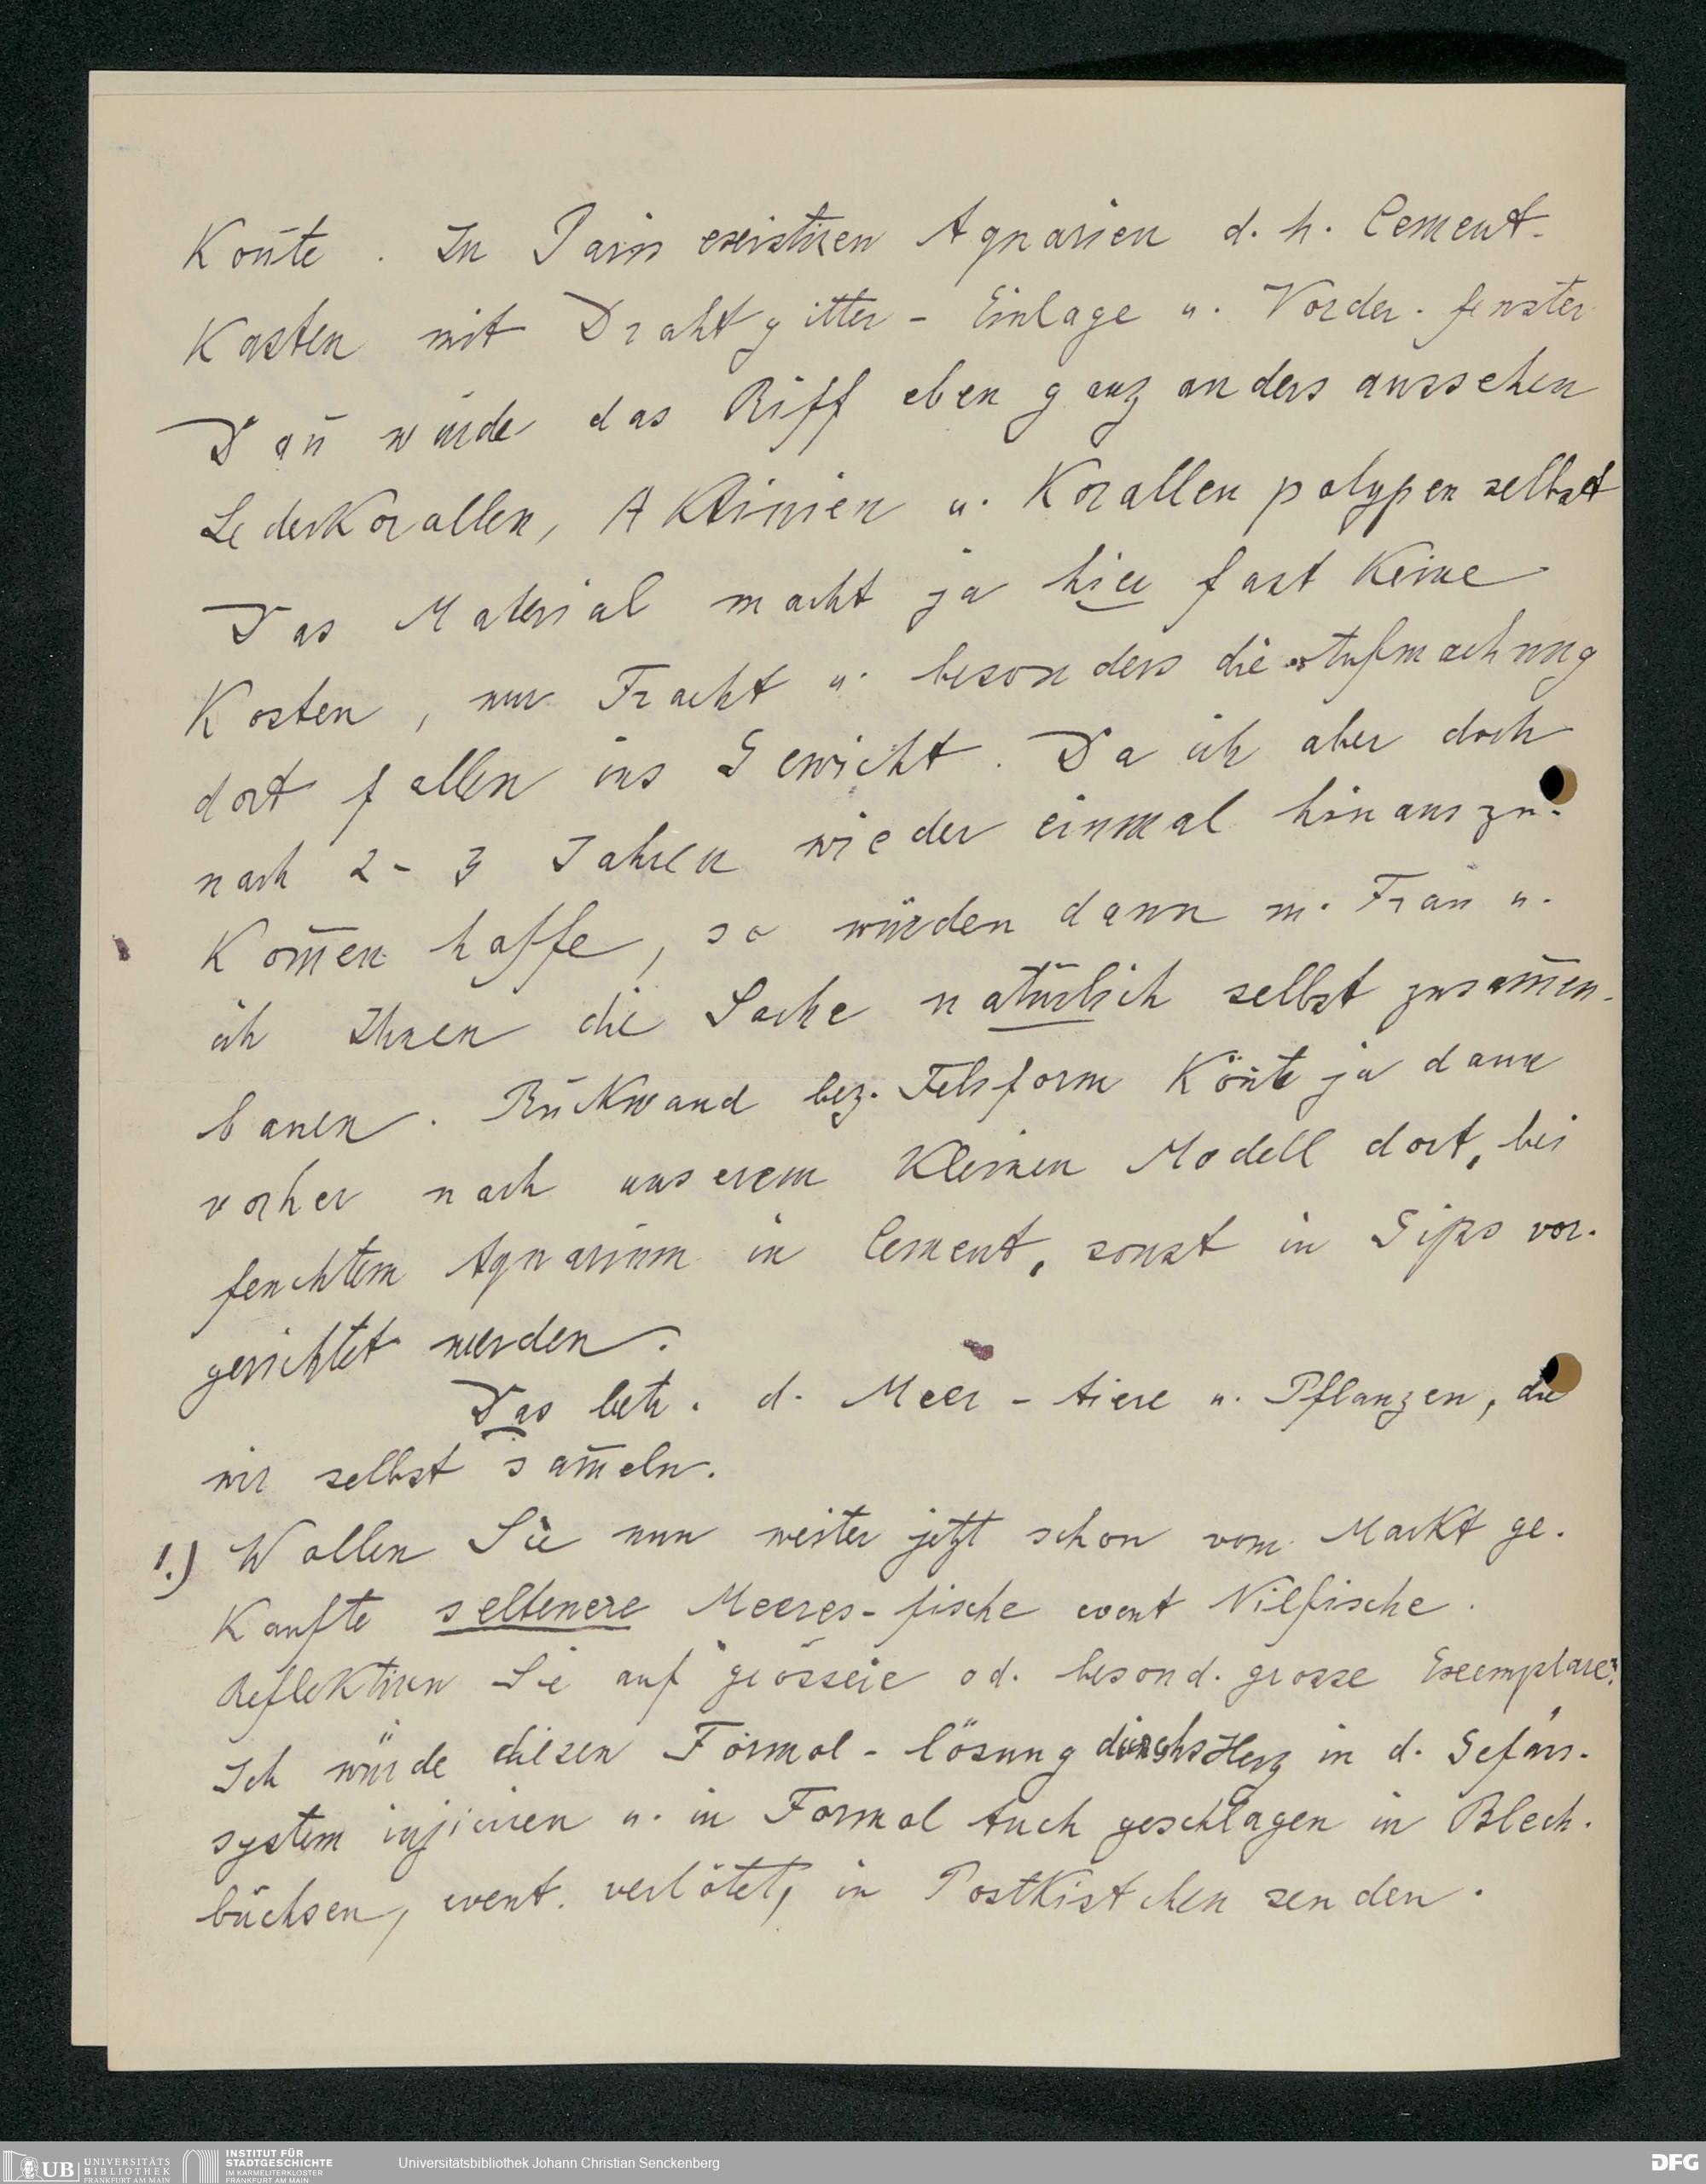 Kon̄te. In Paris existiren Aquarien d. h. Cement-
Kasten mit Drahtgitter-Einlage u. Vorder-fenster
Dan̄ würde das Riff eben ganz anders aussehen
Lederkorallen, Aktinien u. Korallenpolypen selbst
Das Material macht ja hier fast Keine
Kosten, nur Fracht u. besonders die Aufmachung
dort fallen ins Gewicht. Da ich aber doch
nach 2-3 Jahren wieder einmal hinauszu-
Kom̄en hoffe, so würden dann m. Frau u.
ich Ihnen die Sache natürlich selbst zusam̄en-
bauen. Rückwand bez. Felsform Kön̄te ja dann
vorher nach unserem Kleinen Modell dort, bei
feuchtem Aquarium in Cement, sonst in Gips vor-
gerichtet werden.
Das betr. d. Meer-tiere u. Pflanzen, die
wir selbst sam̄eln.
1.) Wollen Sie nun weiter jetzt schon vom Markt ge-
Kaufte seltenere Meeres-fische event Nilfische.
Reflektiren Sie auf grössere od. besond. grosse Exemplare?
Ich würde diesen Formol-lösung durchs Herz in d. Gefäss-
system injiciren u. in Formol tuch geschlagen in Blech-
büchsen, event. verlötet, in Postkistchen senden.
UB UNIVERSITÄTS BIBLIOTHEK FRANKFURT AM MAIN
INSTITUT FÜR STADTGESCHICHTE IM KARMELITERKLOSTER FRANKFURT AM MAIN
Universitätsbibliothek Johann Christian Senckenberg
DFG